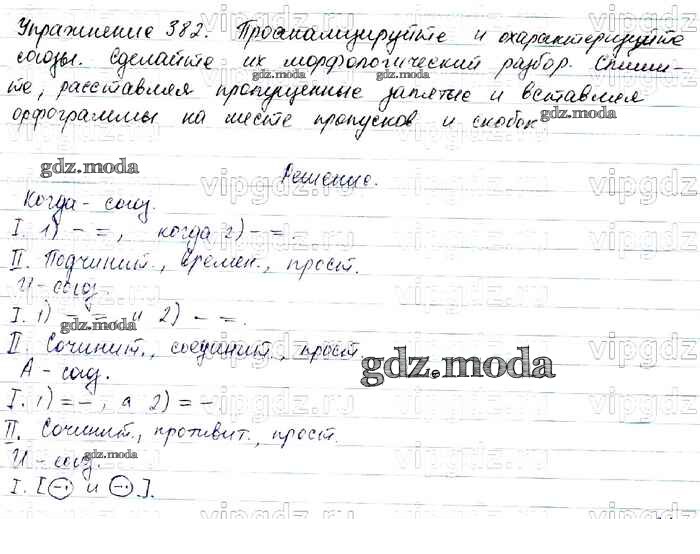 Упражнение 382. Проанализируйте и охарактеризуйте
союзы. Сделайте их морфологический разбор. Спиши-
те, расставляя пропущенные запятые и вставляя
орфограммы на месте пропусков и скобок
gdz.moda gdz.moda
gdz.moda
Решение.
Когда - союз.
I. 1) – =, когда 2) – =.
II. Подчинит., времен., прост.
И - союз.
I. 1) – =, и 2) – =.
gdz.moda
II. Сочинит., соединит., прост.
gdz.moda
А - союз.
I. 1) = –, а 2) = –
II. Сочинит., противит., прост.
gdz.moda
И - союз.
I. [ и ].